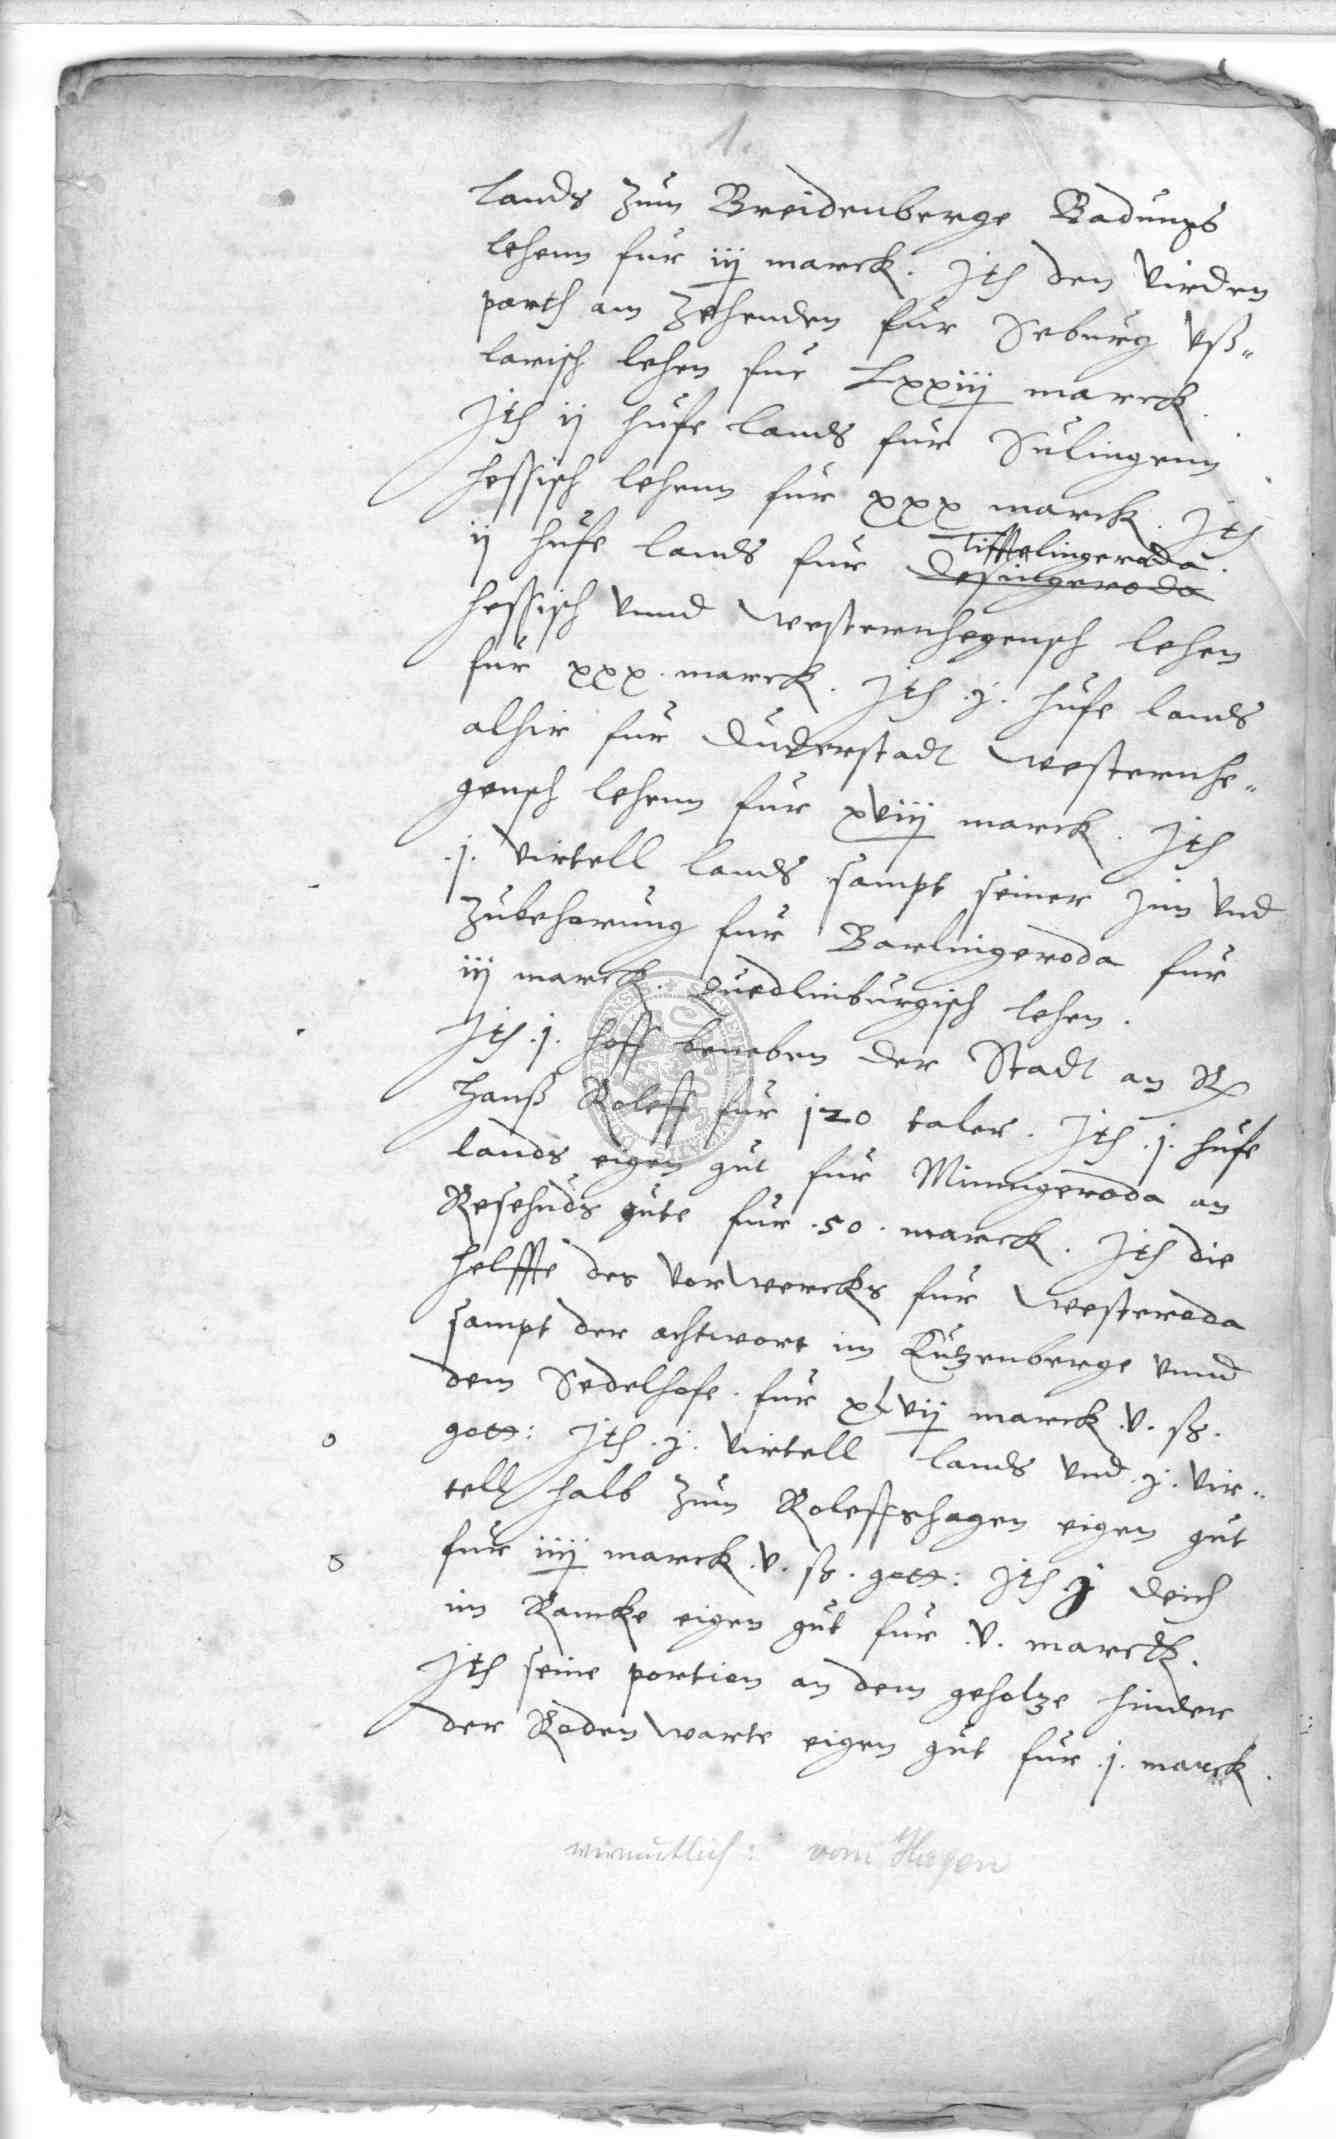 1.
lands zum Breidenberge Badungs
lehenn fur iij marck. Jth den virden
parth am zehenden fur Seburg Vß„
larisch lehen fur Lxxiij marck.
Jth ij hufe lands fur Sulingenn
hessisch lehenn fur xxx marck. Jth
Tiftelingeroda.
ij hufe lands fur Desingeroda
hessisch vnnd westernhegensch lehen
fur xxx. marck. Jth .j. hufe lands
alhir fur Duderstadt westernhe„
gensch lehenn fur xviij marck. Jth
.j. virtell lands sampt seiner Jnn vnd
zubehorung fur Barlingeroda fur
iij marck. Quedlinburgisch lehen.
Jth .j. hoff beneben der Stadt an
Hanß Roleff fur 120 taler. Jth .j. hufe
lands eigen gut fur Minnigeroda an
gute fur .50. marck. Jth die
helffte des vorwercks fur westeroda
sampt der achtwort im Kutzenberge vnnd
dem Sedelhofe. fur xLvij marck .v. ß.
gott: Jth .j. virtell lands vnd .j. vir„
tell halb zum Roleffshagen eigen gut
fur iiij marck .v. ß. gott: Jth j deich
im eigen gut fur .v. marck.
Jth seine portion an dem geholze hinder
der Roden warte eigen gut fur .j. marck.
vermutlich: vom Hagen